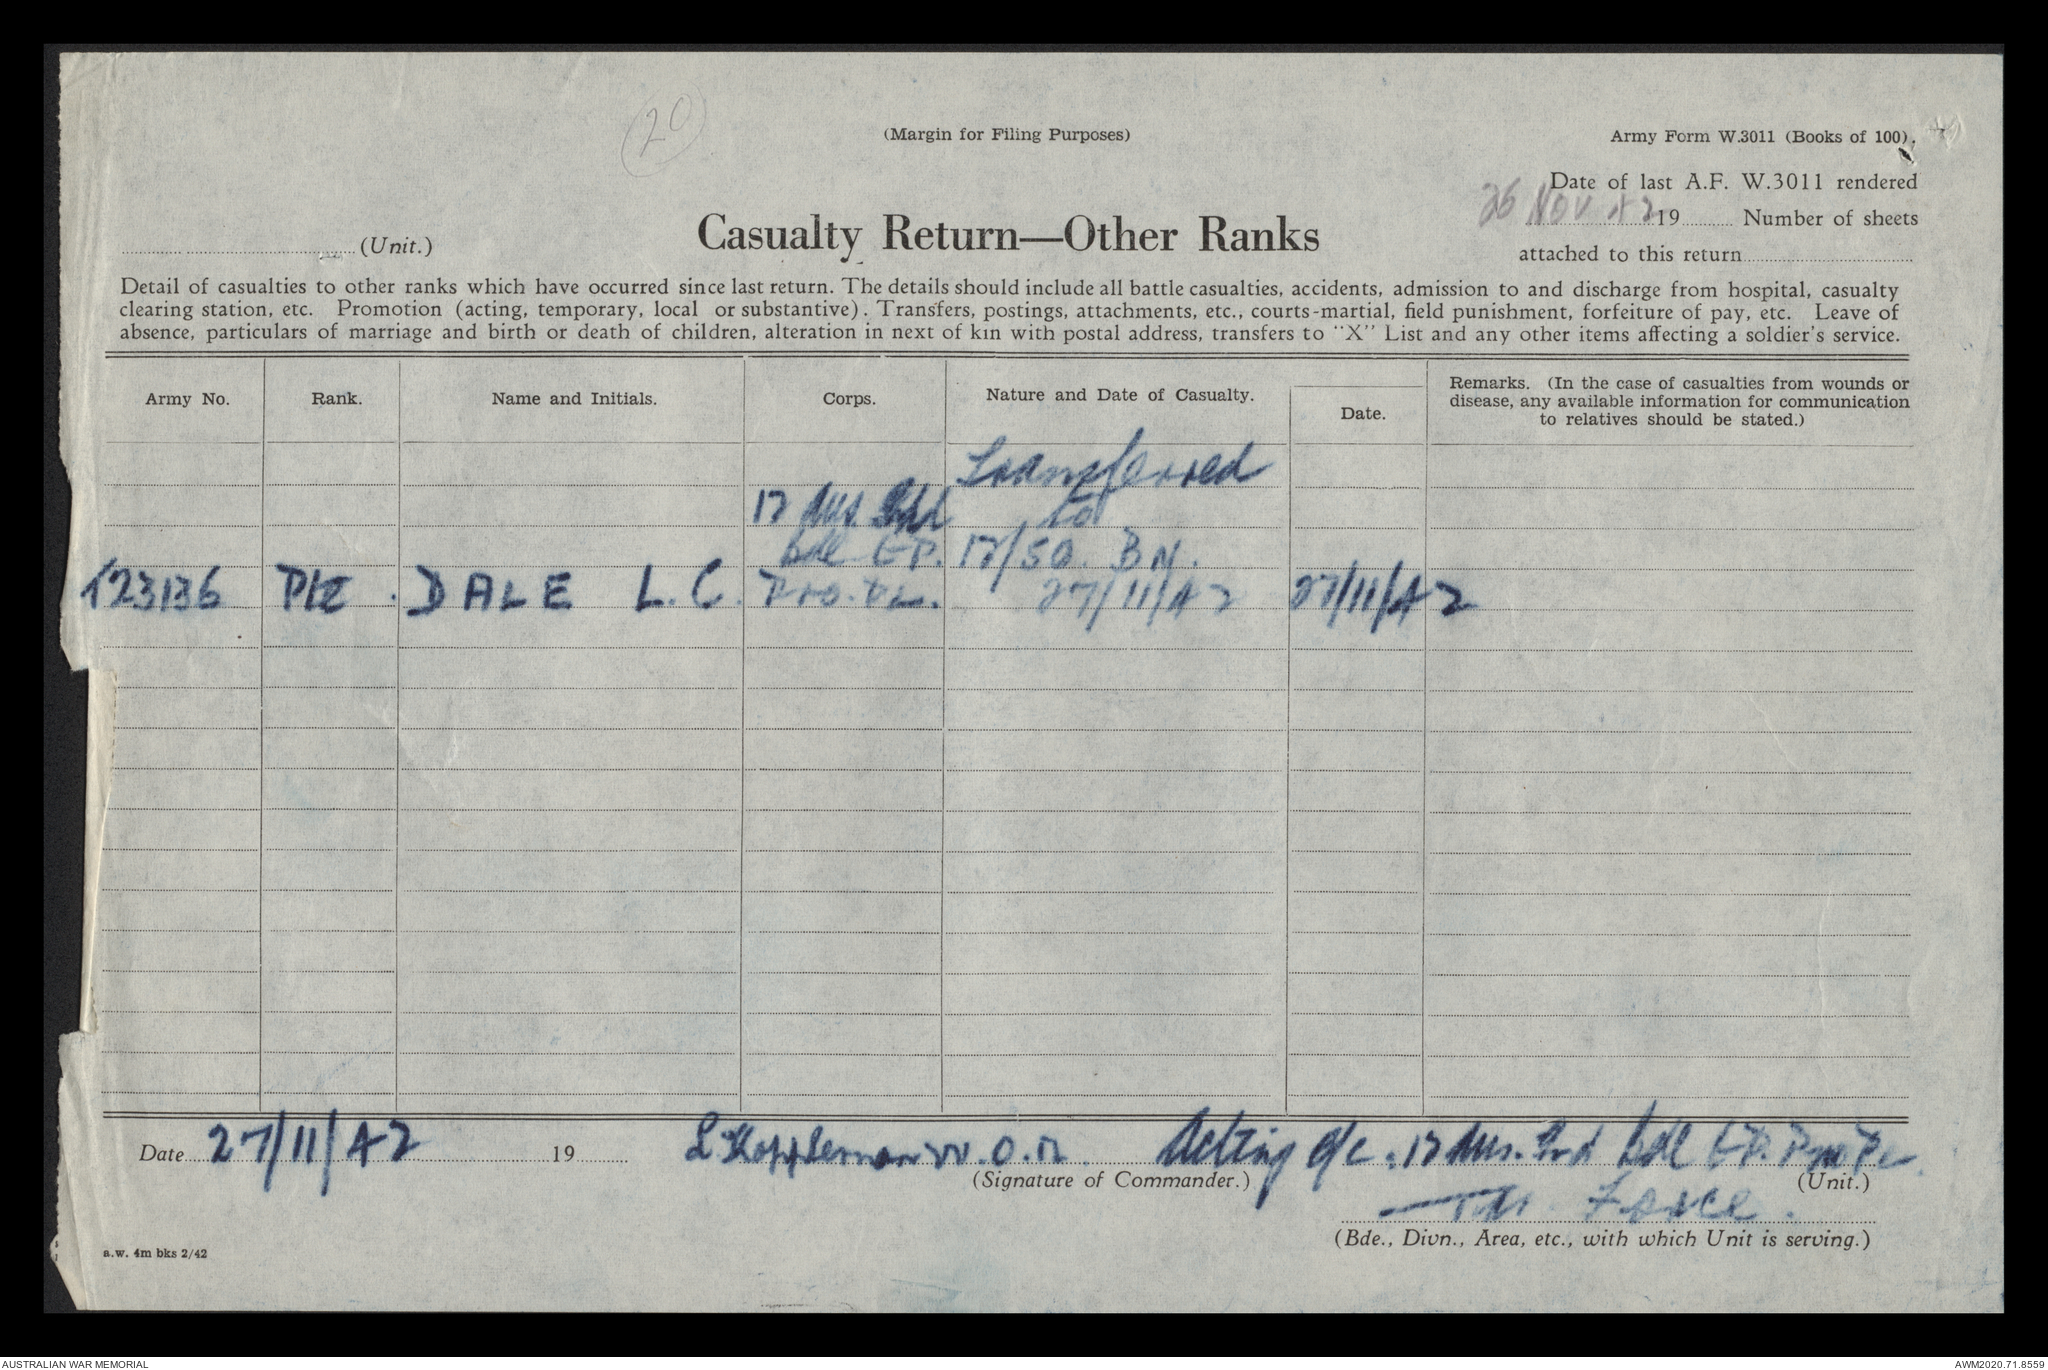 20
(Margin for Filing Purposes)
Army Form W.3011 (Books of 100).
Date of last A.F. W.3011 rendered
26 NOV 42 19 Number of sheets
attached to this return
(Unit.)
Casualty Return—Other Ranks
Detail of casualties to other ranks which have occurred since last return. The details should include all battle casualties, accidents, admission to and discharge from hospital, casualty
clearing station, etc. Promotion (acting, temporary, local or substantive). Transfers, postings, attachments, etc., courts-martial, field punishment, forfeiture of pay, etc. Leave of
absence, particulars of marriage and birth or death of children, alteration in next of kin with postal address, transfers to "X" List and any other items affecting a soldier's service.
Army No. Rank. Name and Initials. Corps. Nature and Date of Casualty. Date. Remarks. (In the case of casualties from wounds or
disease, any available information for communication
to relatives should be stated.)
Transferred
12 Aus. to
Bde GP. 12/50. BN.
123136 Pte. DALE L.C. Pro. PL. 27/11/42 27/11/42
Date 27/11/42 19 L. Koppleman W.O.II. Acting O/C. 12 Aus. Bde GP. Pro Pl.
(Signature of Commander.) (Unit.)
Force.
(Bde., Divn., Area, etc., with which Unit is serving.)
a.w. 4m bks 2/42
AUSTRALIAN WAR MEMORIAL
AWM2020.71.8559